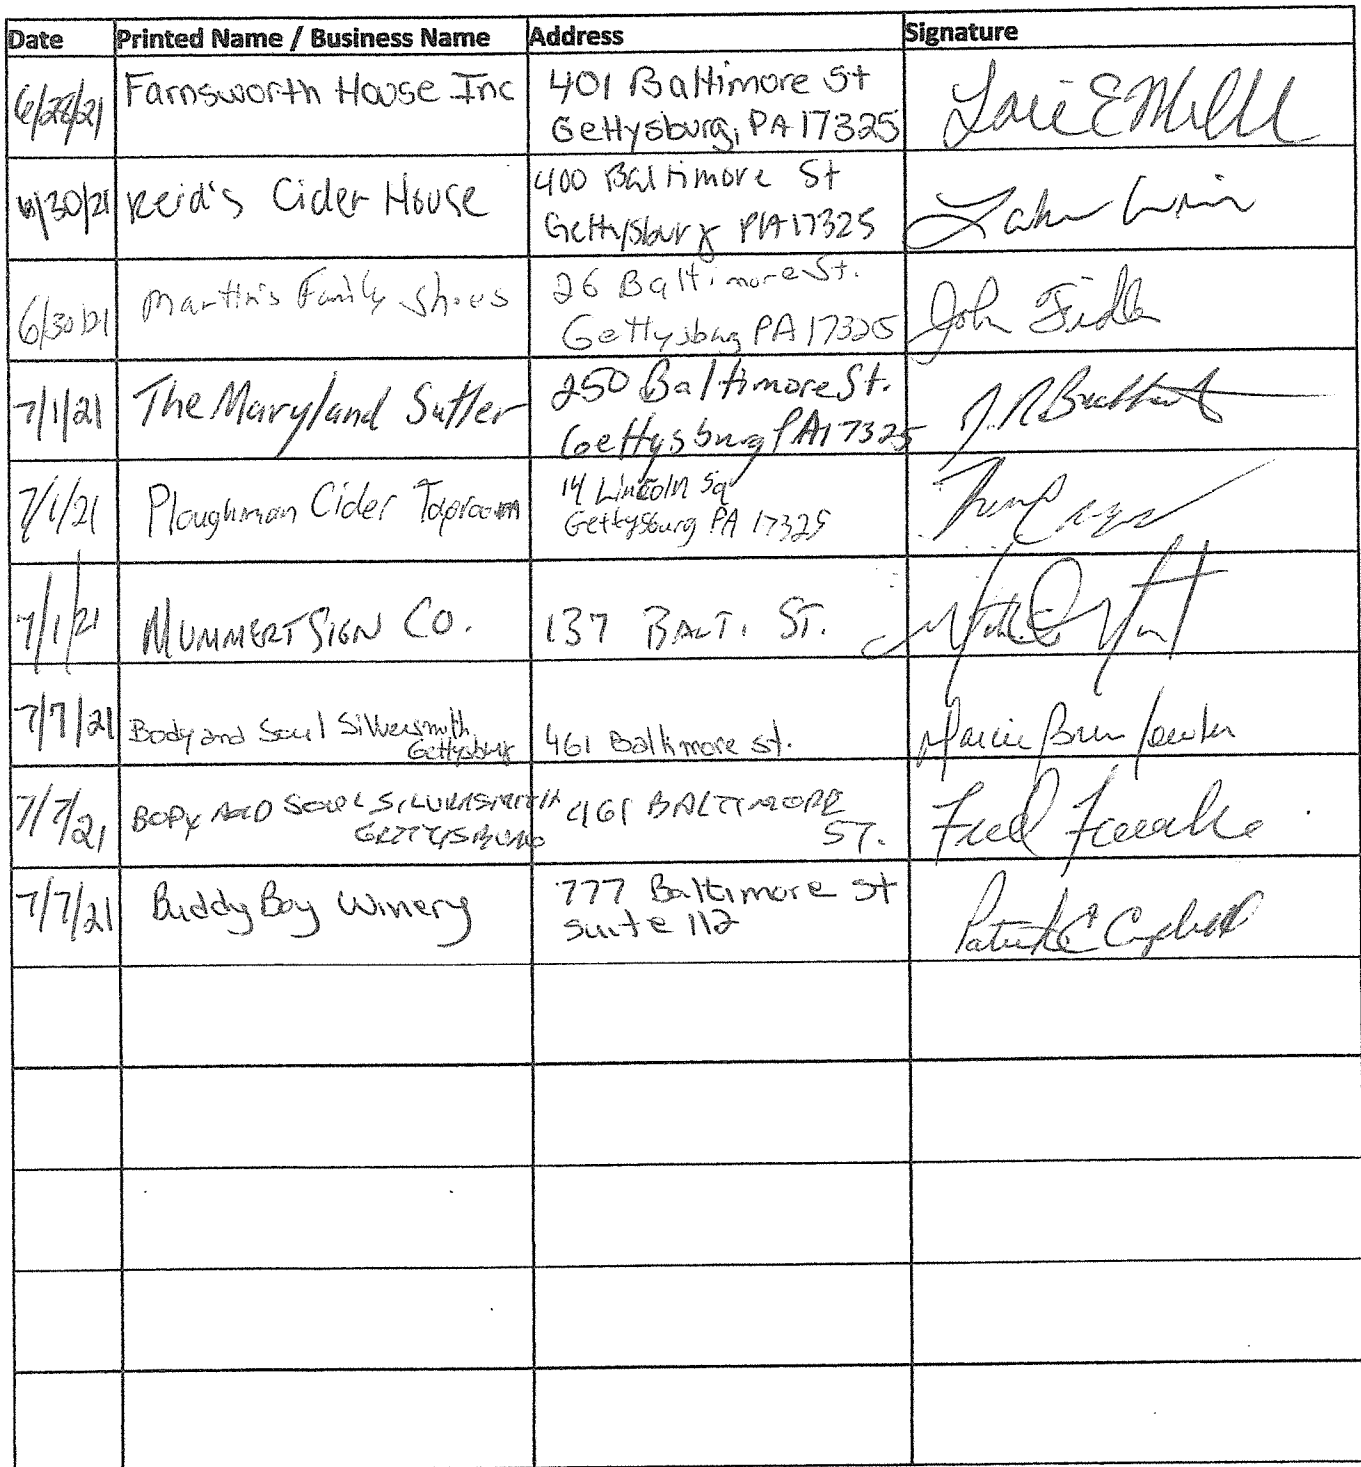 Date Printed Name / Business Name Address Signature
6/28/21 Farnsworth House Inc 401 Baltimore St
Gettysburg, PA 17325
6/30/21 Reid's Cider House 400 Baltimore St
Gettysburg PA 17325
6/30/21 Martin's Family Shoes 26 Baltimore St. John Fidler
Gettysburg PA 17325
7/1/21 The Maryland Sutler 250 Baltimore St.
Gettysburg PA 17325
7/1/21 Ploughman Cider Taproom 14 Lincoln Sq
Gettysburg PA 17325
7/1/21 MUMMERT SIGN CO. 137 BALT. ST.
7/7/21 Body and Soul Silversmith 461 Baltimore st.
Gettysburg
7/7/21 BODY AND SOUL SILVERSMITH 461 BALTIMORE
GETTYSBURG ST.
7/7/21 Buddy Boy Winery 777 Baltimore St
Suite 112